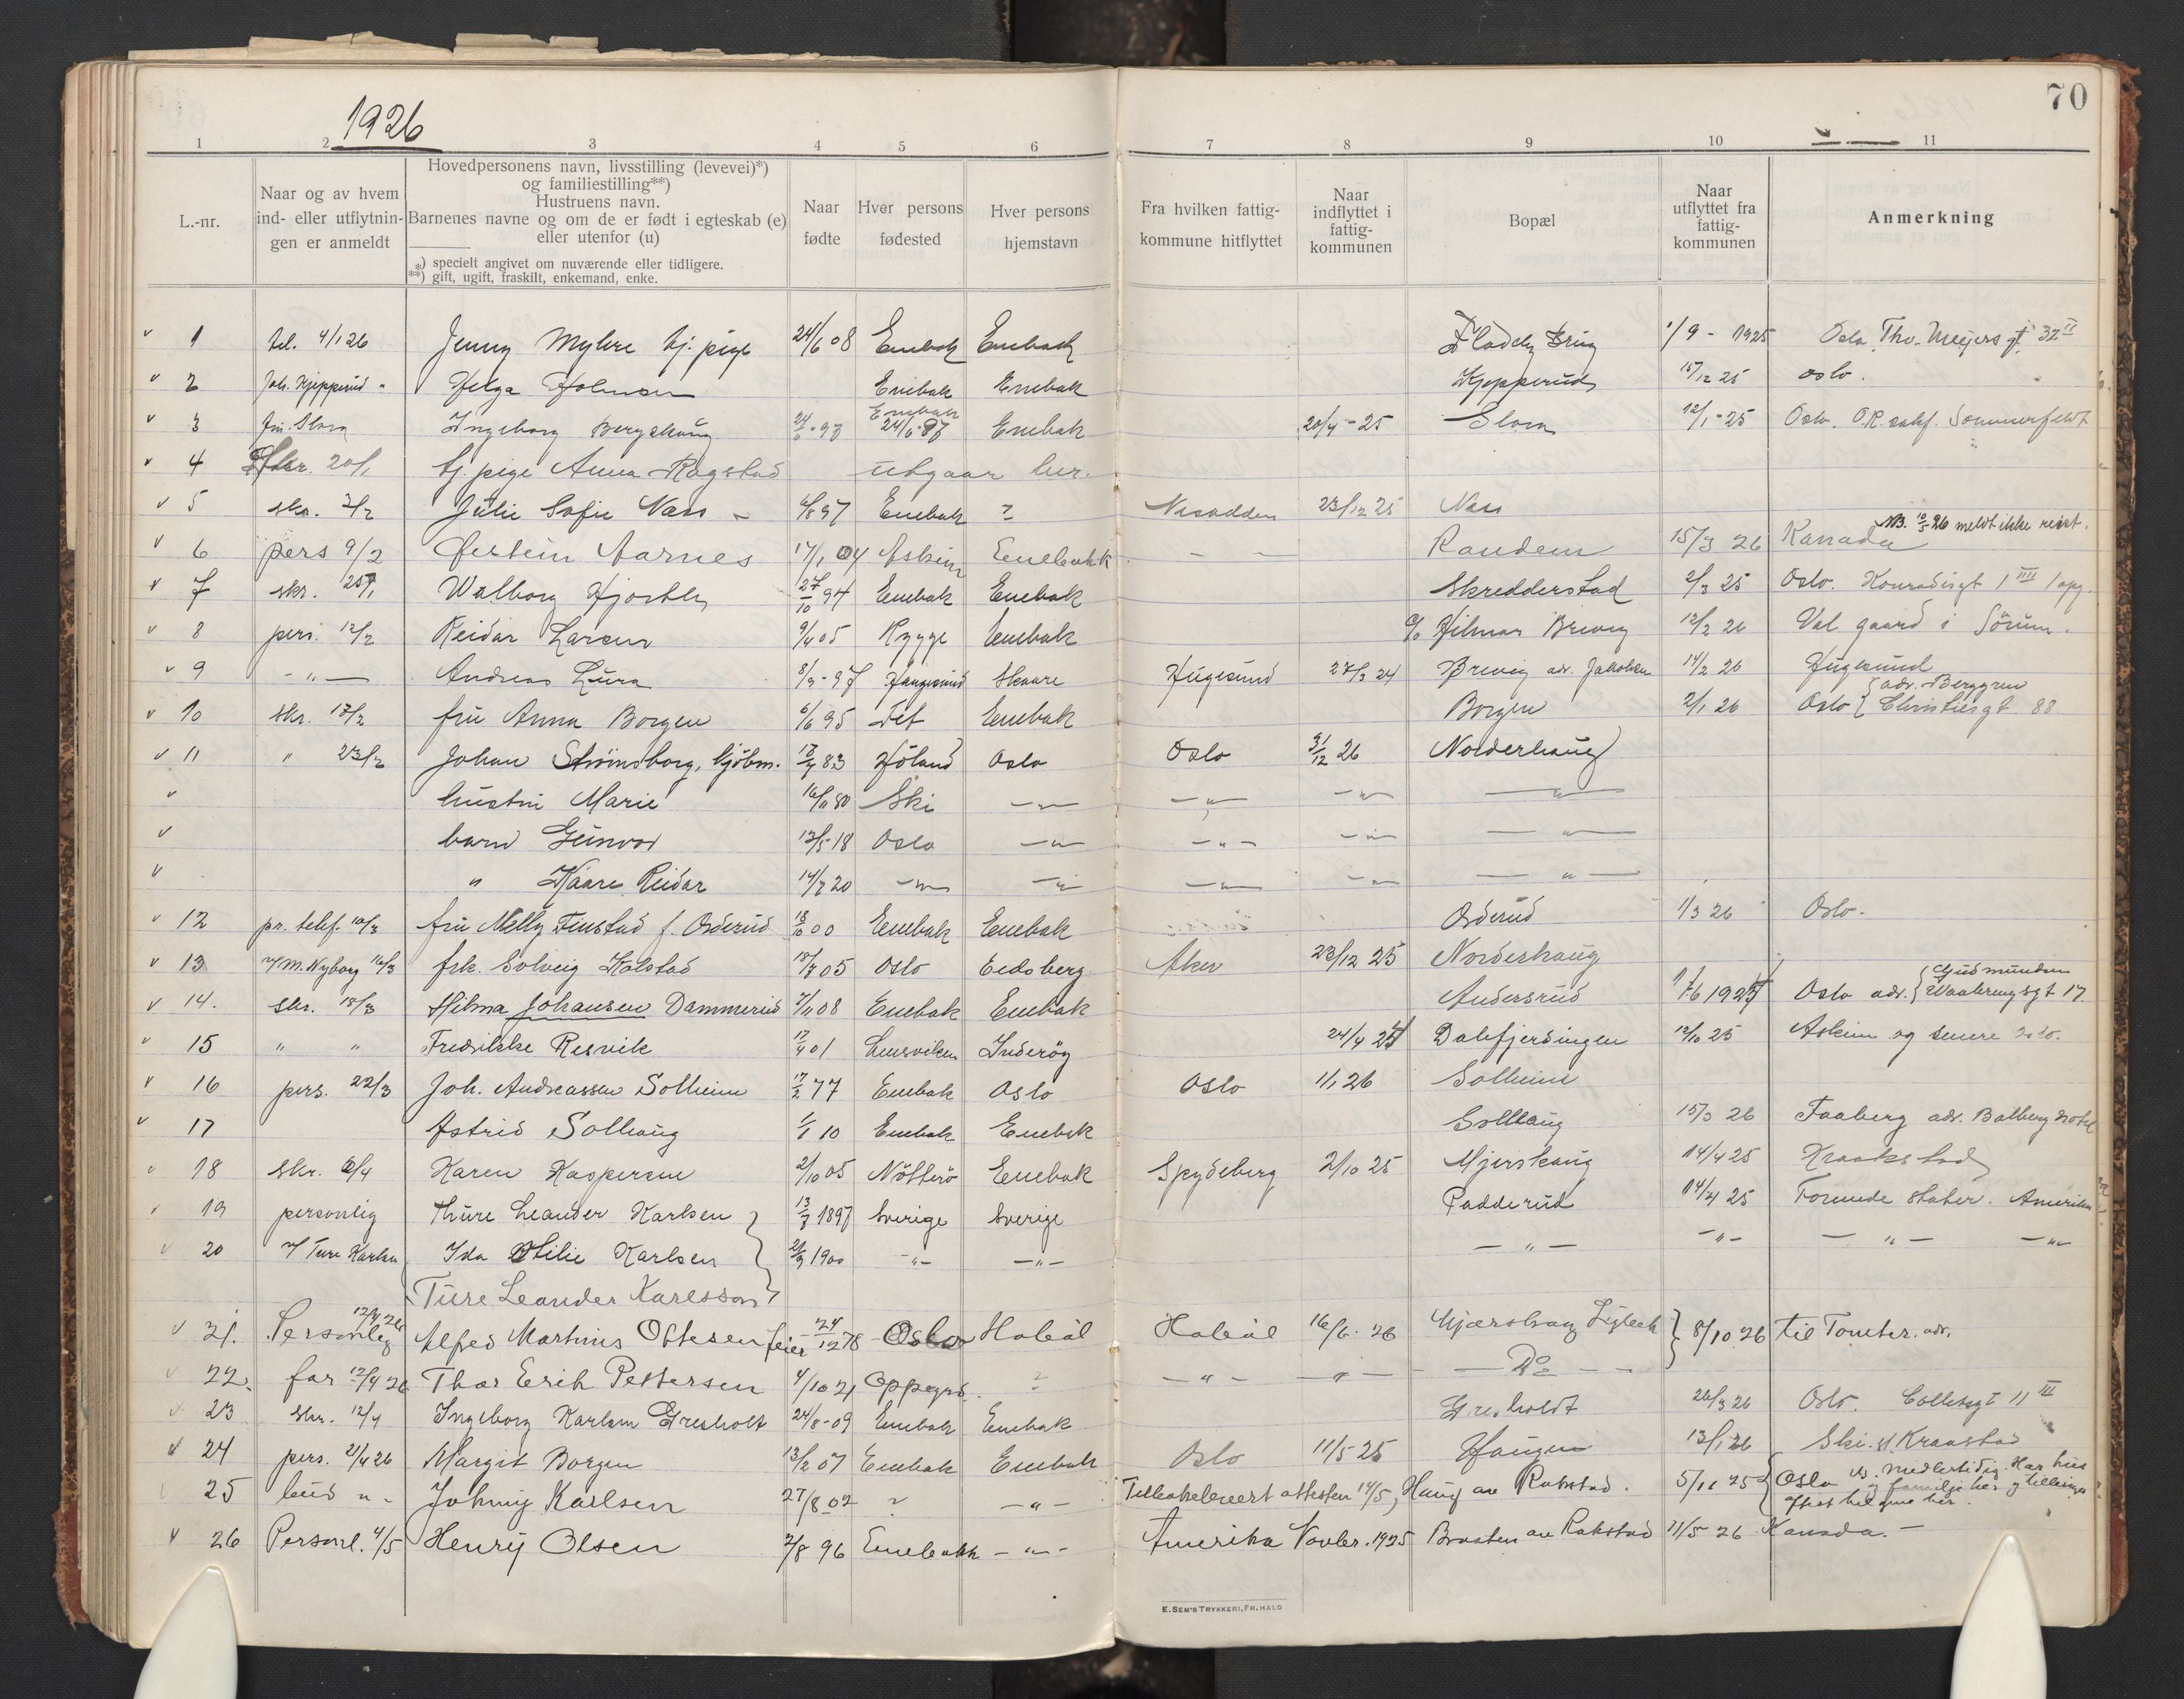 70
1926
1 2 3 4 5 6 7 8 9 10 11
L.-nr.
Naar og av hvem
ind- eller utflytnin-
gen er anmeldt
Hovedpersonens navn, livsstilling (levevei)*)
og familiestilling**)
Hustruens navn.
Barnenes navne og om de er født i egteskab (e)
eller utenfor (u)
*) specielt angivet om nuværende eller tidligere.
**) gift, ugift, fraskilt, enkemand, enke.
Naar
fødte
Hver persons
fødested
Hver persons
hjemstavn
Fra hvilken fattig-
kommune hitflyttet
Naar
indflyttet i
fattig-
kommunen
Bopæl
Naar
utflyttet fra
fattig-
kommunen
Anmerkning
1 tel. 4/1 26 Jenny Myhre tj. pige 24/6 08 Enebak Enebak 1/9 - 1925 Oslo Thv. Meyers gt. 32 II
2 Joh. Kjepperud " Helga Holmsen Enebak Enebak Kjepperud 15/12 25 Oslo.
3 fru Slora Ingeborg Bergskaug 24/6 - 97 Enebak 24/6-97 Enebak 20/4 - 25 Slora 12/1 - 25 Oslo. O.R. sakf. Sommerfeldt
4 skr. 20/1 tj. pige Anna Ragstad utgaar her.
5 skr. 3/2 Julie Sofie Næss - 6/8 97 Enebak ? Nesodden 23/12 25 Næss
6 pers 9/2 Øistein Aarnes 17/1 04 Askim Enebakk - - Randem 15/3 26 Kanada NB. 10/5 26 meldt ikke reist.
7 skr. 25/1 Walborg Hjortly 27/10 94 Enebak Enebak Skredderstad 2/3 25 Oslo. Konradisgt 1 IIII 1 opg.
8 pers. 12/2 Reidar Larsen 9/4 05 Rygge Enebak c/o Hilmar Brevig 12/2 26 Val gaard i Sörum.
9 -"- Andreas Lura 8/3 - 97 Haugesund Skaare Hugesund 27/3 24 Brevig adr. Jakobsen 14/2 26 Hugesund
10 skr. 17/2 fru Anna Borgen 6/6 95 Fet Enebak Borgen 2/1 26 Oslo { adr. Berggren Christiesgt 88
11 " 23/2 Johan Strömsborg, kjöbm. 17/4 83 Höland Oslo Oslo 31/12 26 Norderhaug
hustru Marie 16/11 80 Ski -"- -"- -"- -"-
barn Gunvor 12/5 18 Oslo -"- -"- -"- -"-
" Kaare Reidar 14/7 20 -"- -"- -"- -"- -"-
12 pr. telf. 10/3 fru Nelly Finstad f. Osderud 00 Enebak Enebak Osderud 1/3 26 Oslo.
13 v/ M. Nyborg 16/3 frk. Solveig Kolstad 18/7 05 Oslo Eidsberg Aker 23/12 25 Norderhaug
14. skr. 18/3 Hilma Johansen Dammerud 7/11 08 Enebak Enebak Andersrud 1/6 1925 Oslo adr. { Gudmundsen Waalerengsgt 17
15 " " Fredrikke Resvik 17/4 01 Inderöy 24/4 25 Dalefjerdingen 12/10 25 Askim og senere Oslo.
16 pers. 22/3 Joh. Andreassen Solheim 17/2 77 Enebak Oslo Oslo 1/1 26 Solheim
17 Astrid Solhaug 1/1 10 Enebak Enebak Solhaug 15/3 26 Faaberg adr. Balberg hotel
18 skr. 6/4 Karen Kaspersen 2/10 05 Nötterö Enebak Spydeberg 2/10 25 Mjerskaug 14/4 25 Kraakstad
19 personlig Thure Leander Karlsen 13/7 1897 Sverige Sverige Padderud 14/4 25 Forenede Stater. Amerika
20 v/ Ture Karlsen Ida Otilie Karlsen 21/3 1900 -"- -"- -"- -"- -"- -"-
Ture Leander Karlsson
21. Personlig 12/4 26 Alfred Martinus Oftesen feier 24/12 78 Oslo Hobøl Hobøl 16/6. 26 Mjærskaug 8/10 26 til Tomter. adr.
22. far 12/4 26 Thor Erik Pettersen 4/10 21 Oppegrd. ? -"- -"- Do
23 skr. 12/4 Ingeborg Karlsen Gresholt 24/8 - 09 Enebak Enebak Gresholdt 26/3 26 Oslo. Colletsgt 11 III
24 pers. 21/4 26 Margit Borgen 13/2 07 Enebak Enebak Oslo 11/5 25 Haugen 13/1 26 Ski. st. Kraakstad
25 bud "- Johnny Karlsen 27/8 02 " -"- Tilbakelevert attesten 14/5, Haug av Rakstad. 5/11 25 { Oslo. Midlertidig. Har hus og familje her
26 Personl. 4/5 Henry Olsen 2/8 96 Enebakk -"- Amerika Novbr. 1925 Braaten av Rakstad 11/5 26 Kanada. -
E. SEM'S TRYKKERI, FR.HALD